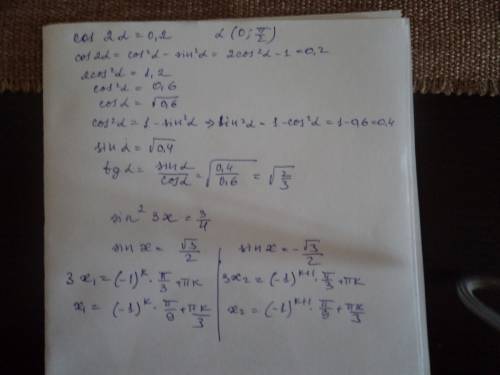 cos 2α = 0,2        α (0; π/2)
cos2α = cos²α - sin²α = 2cos²α - 1 = 0,2
2cos²α = 1,2
cos²α = 0,6
cosα = √0,6
cos²α = 1 - sin²α ⇒ sin²α = 1 - cos²α = 1 - 0,6 = 0,4
sinα = √0,4
tgα = sinα/cosα = √(0,4/0,6) = √(2/3)
sin² 3x = 3/4
sin x = √3/2        sin x = -√3/2
3x₁ = (-1)^k · π/3 + πk        3x₂ = (-1)^(k+1) · π/3 + πk
x₁ = (-1)^k · π/9 + πk/3        x₂ = (-1)^(k+1) · π/9 + πk/3